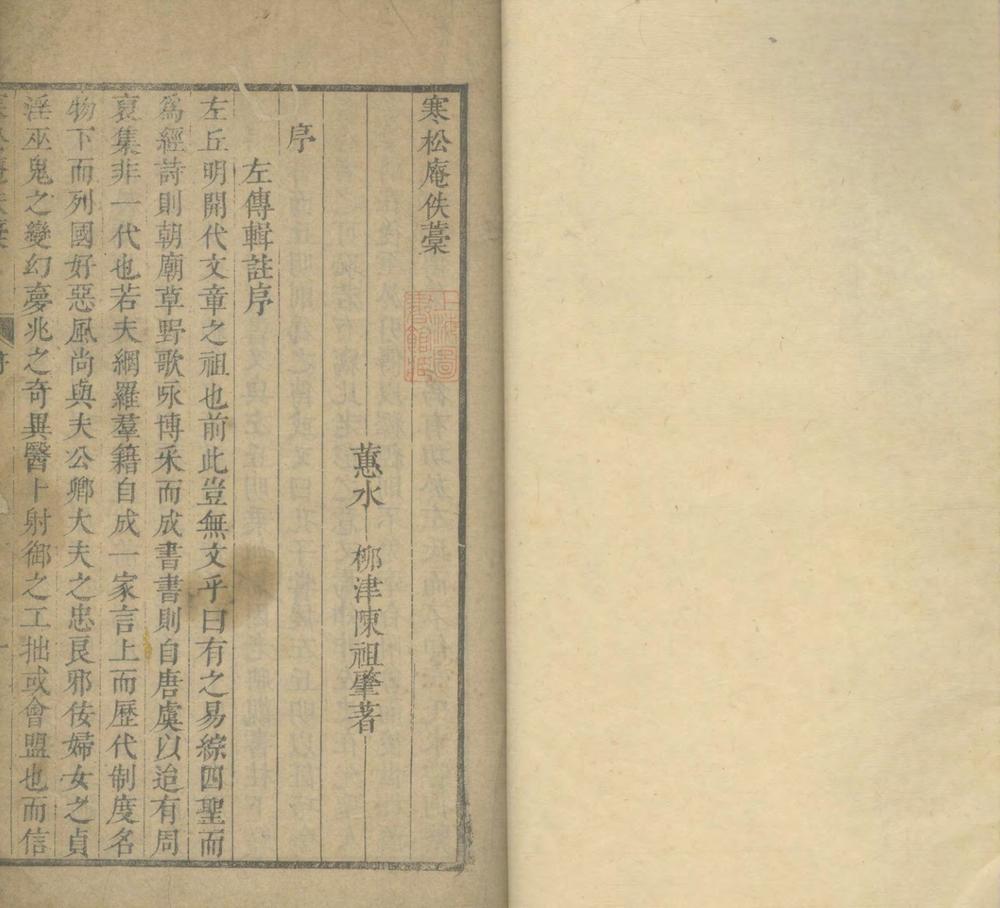 寒松庵佚藁
上海圖
書館藏
蕙水 柳津陳祖肇著
序
左傳輯註序
左丘明開代文章之祖也前此豈無文乎曰有之易綜四聖而
爲經詩則朝廟草野歌咏博采而成書書則自唐虞以迨有周
裒集非一代也若夫網羅羣籍自成一家言上而歷代制度名
物下而列國好惡風尚與夫公卿大夫之忠良邪佞婦女之貞
淫巫鬼之變幻夢兆之奇異醫卜射御之工拙或會盟也而信